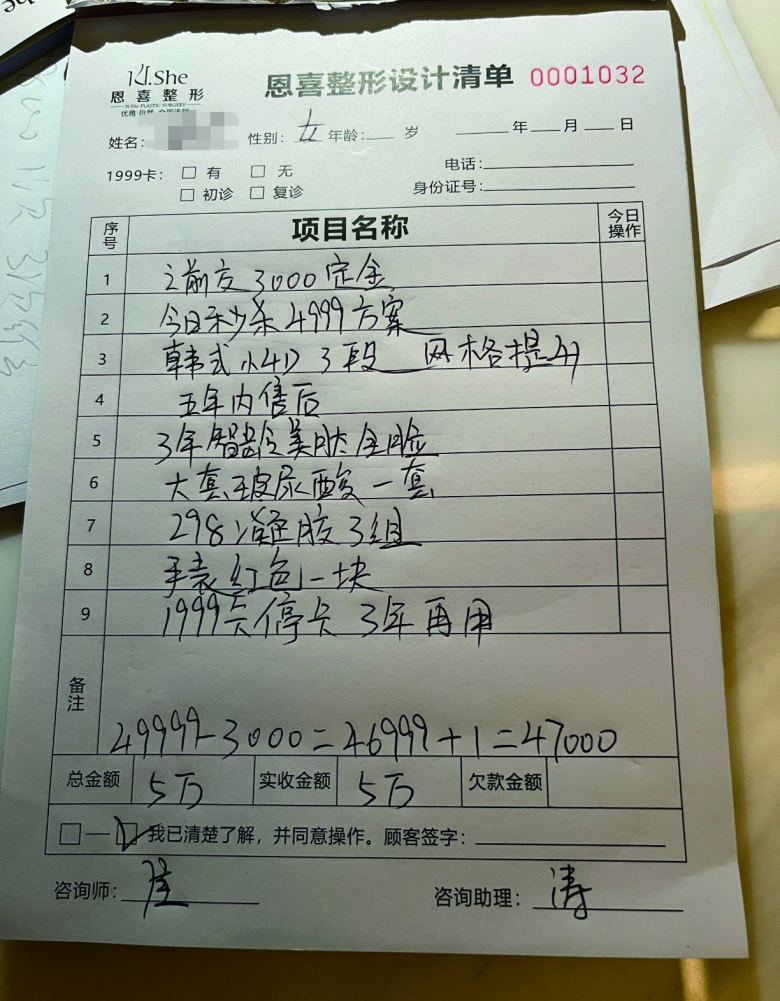 She
恩喜整形
恩喜整形设计清单 0001032
姓名: 性别: 女 年龄: 岁 年 月 日
1999卡: □ 有 □ 无 电话:
□ 初诊 □ 复诊 身份证号:
序号 项目名称 今日操作
1 之前交3000定金
2 今日秒杀4999方案
3 韩式小4D 3段 网格提升
4 五年内售后
5 3年智龄美肤全脸
6 大真玻尿酸一套
7 298凝胶3组
8 手表红包一块
9 1999卡停卡 3年再用
备注
49999-3000=46999+1=47000
总金额 5万 实收金额 5万 欠款金额
□—☑ 我已清楚了解，并同意操作。顾客签字:
咨询师: 咨询助理: 涛